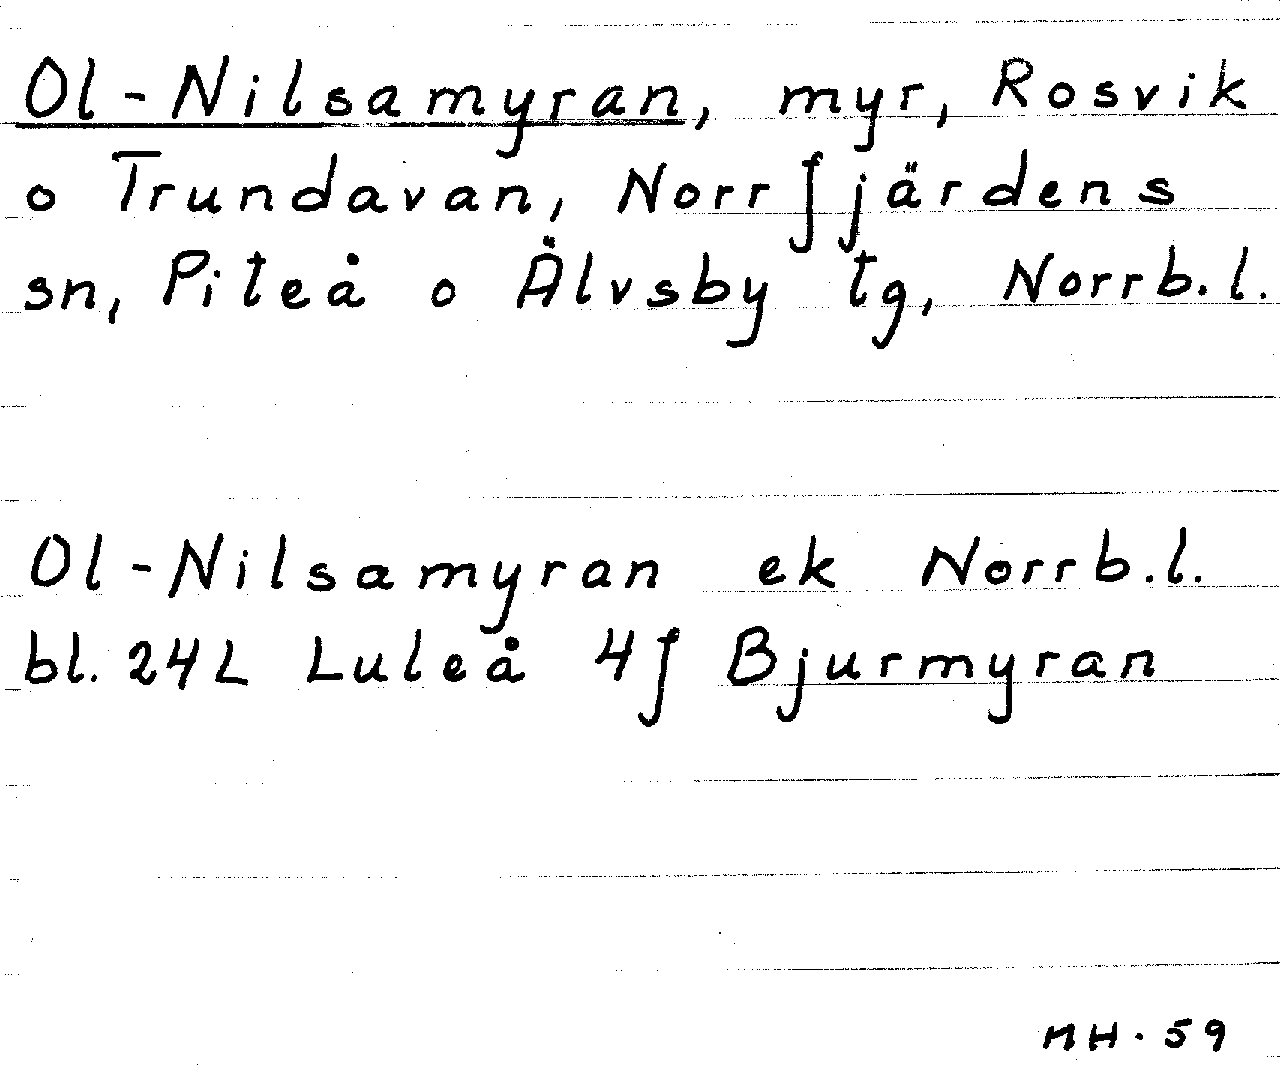 Ol-Nilsamyran, myr, Rosvik
o Trundavan, Norrfjärdens
sn, Piteå o Älvsby tg, Norrb.l.
Ol-Nilsamyran ek Norrb.l.
bl. 24L Luleå 4f Bjurmyran
MH.59